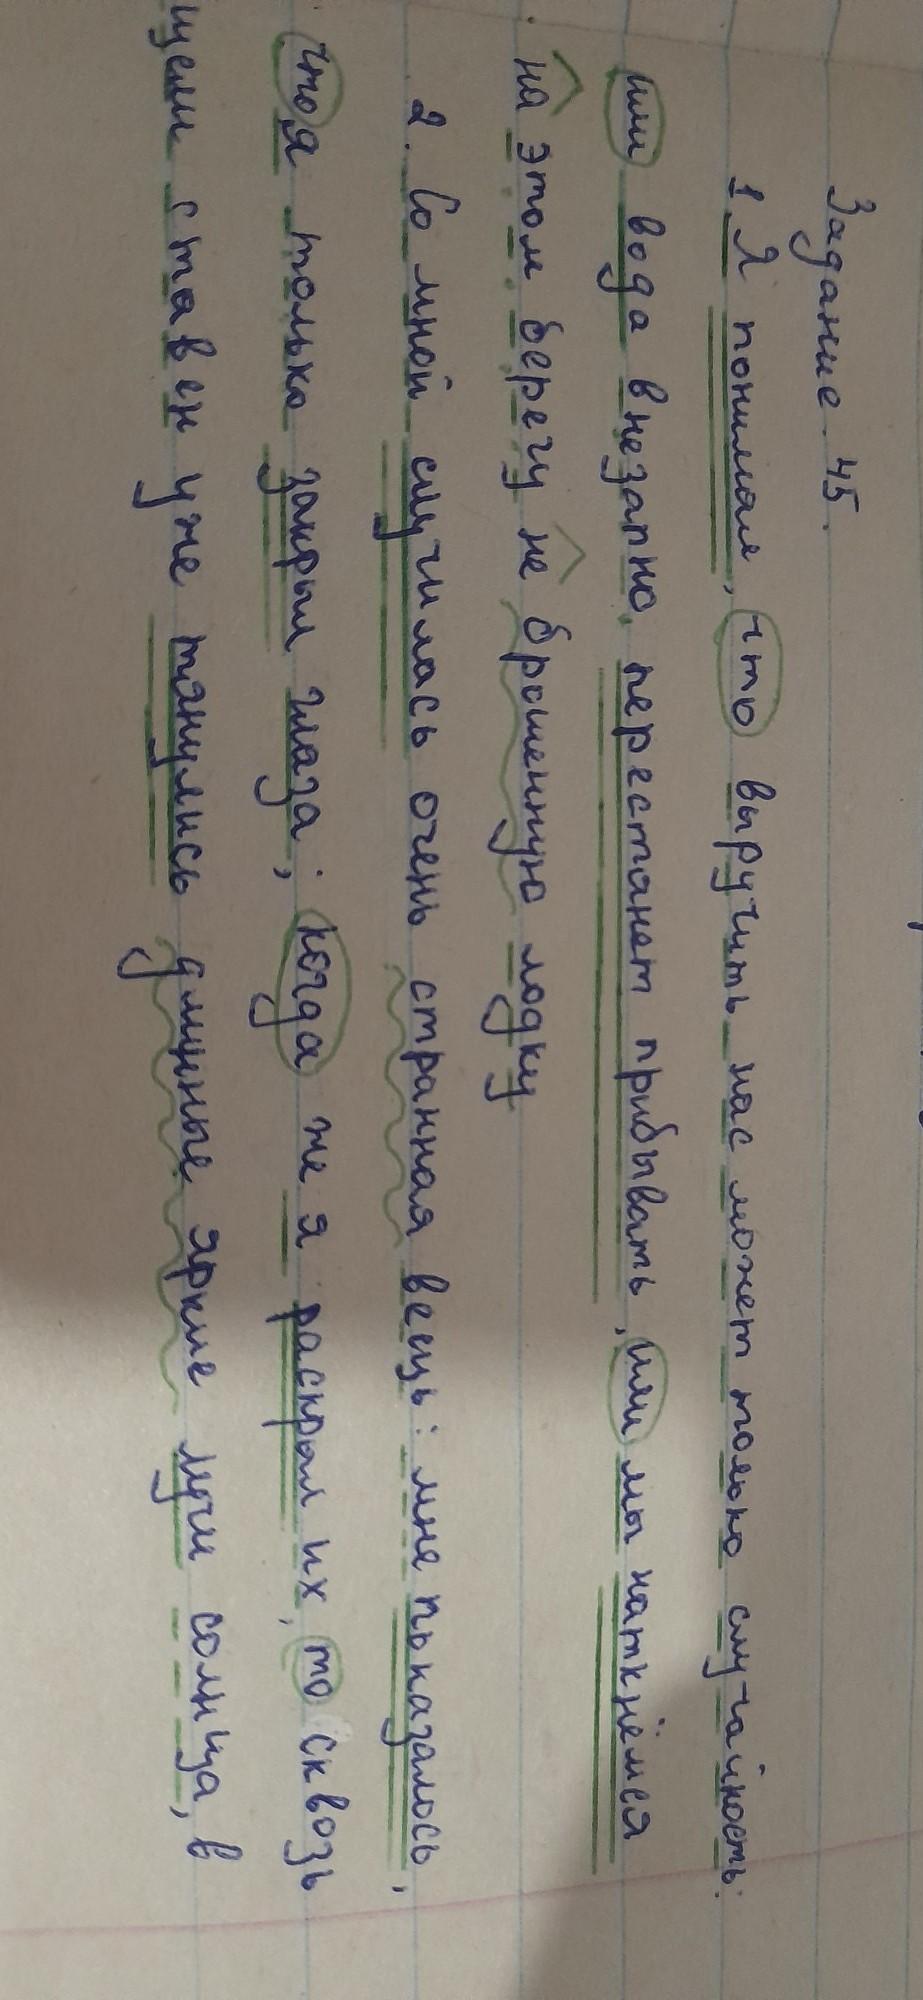 Задание 45.
1. Я понимал, что выручить нас может только случайность:
или вода внезапно перестанет прибывать, или мы наткнёмся
на этом берегу на брошенную лодку
2. Со мной случилась очень странная вещь: мне показалось,
что я только закрыл глаза; когда же я раскрыл их, то сквозь
щели ставен уже тянулись длинные яркие лучи солнца, в